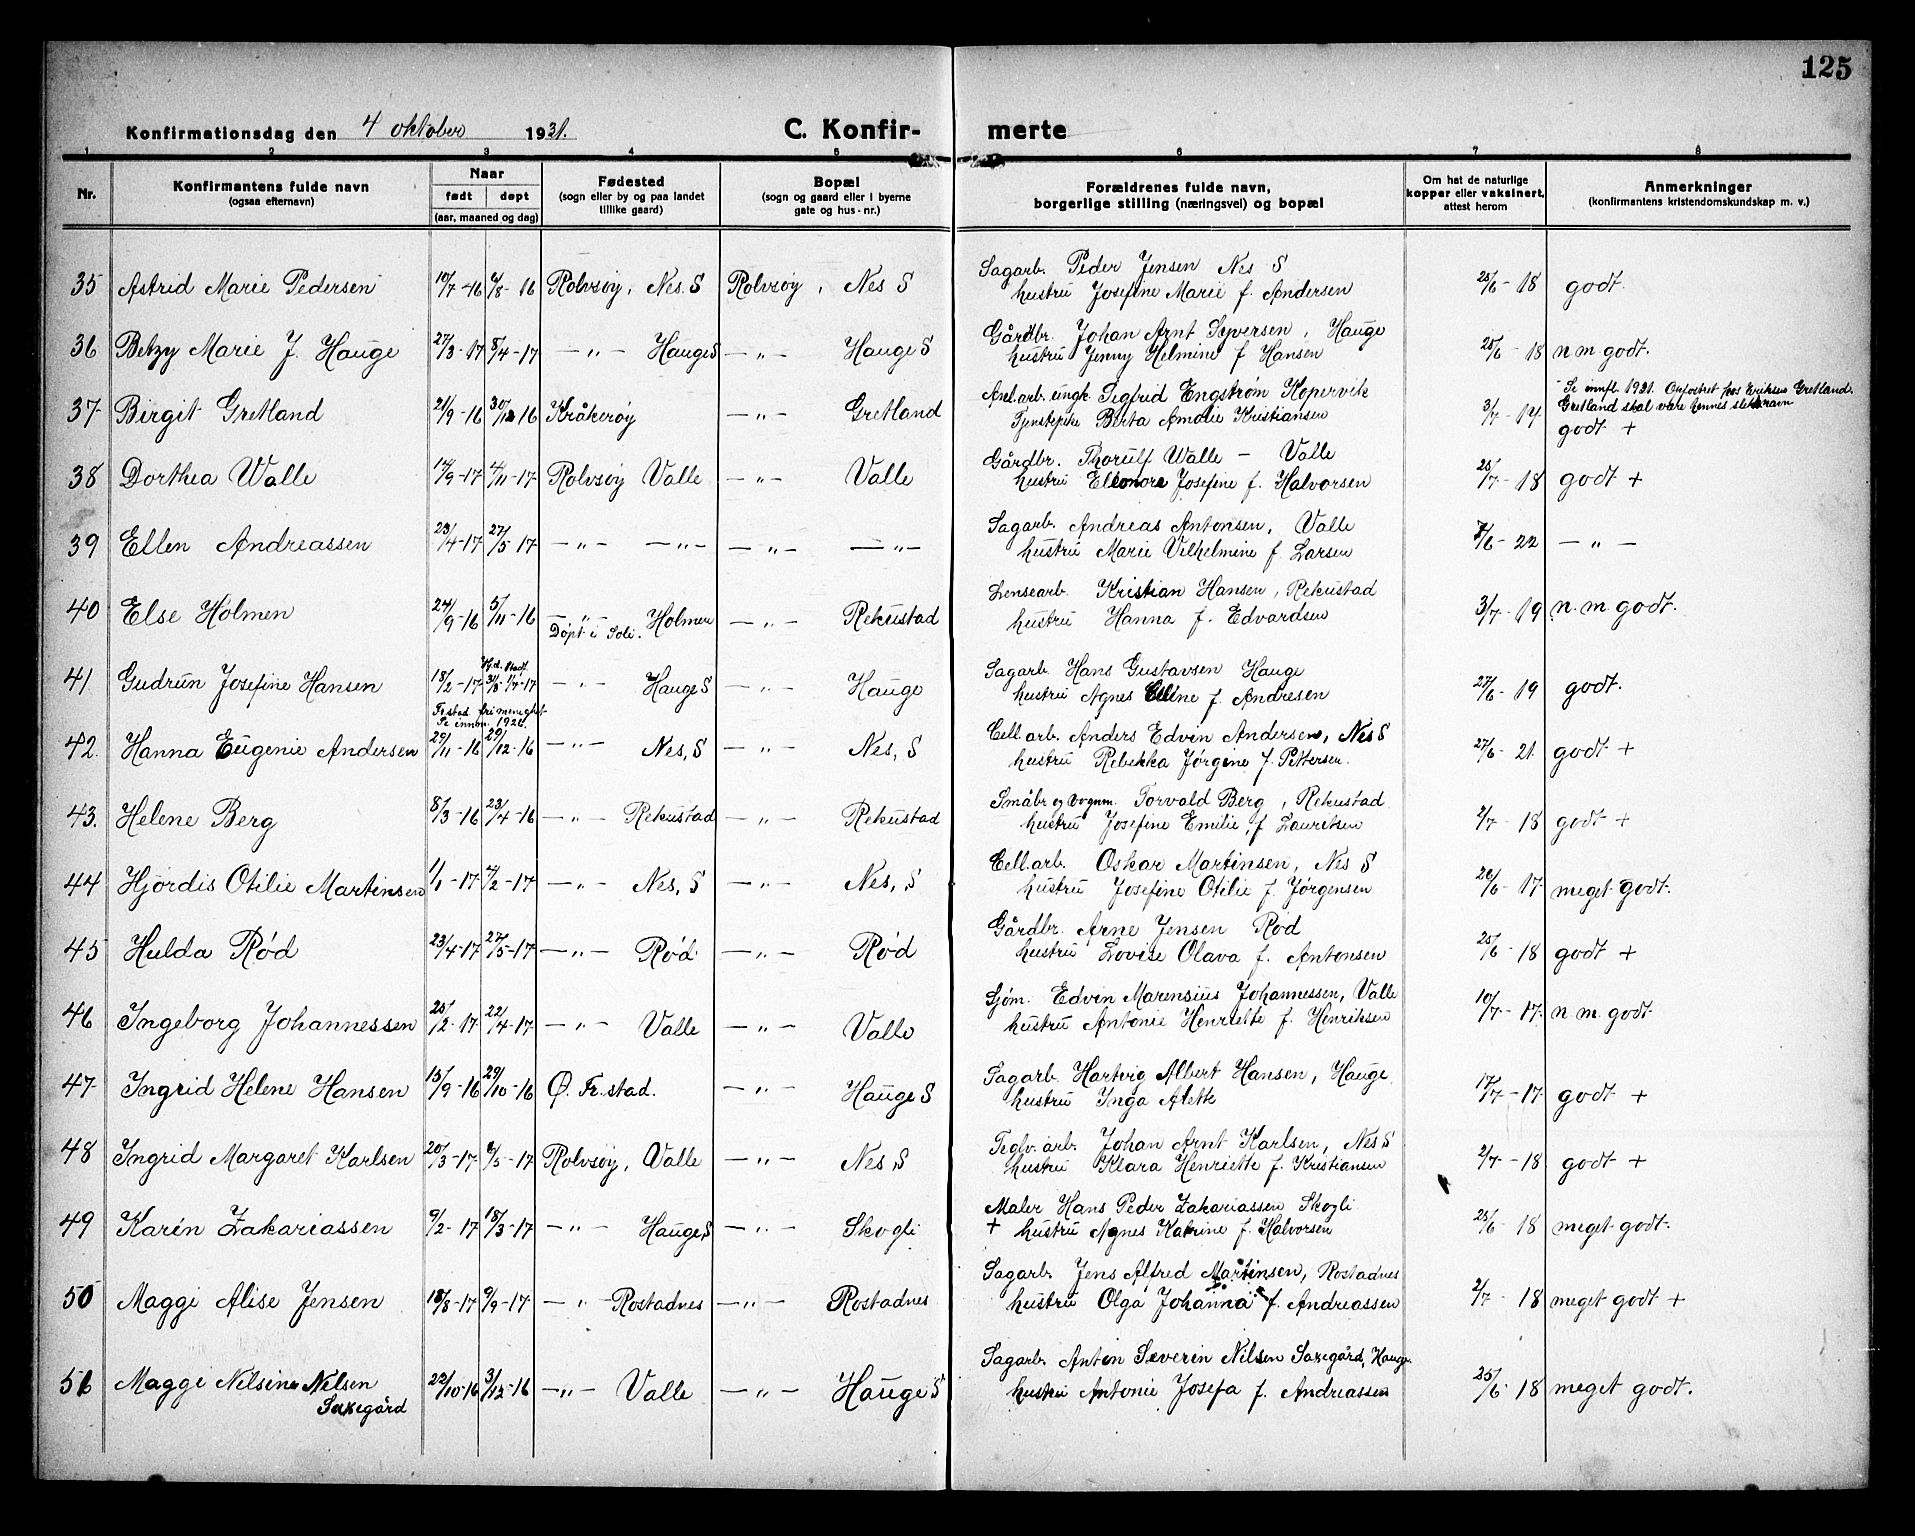 125
Konfirmationsdag den 4 oktober 1931.
C. Konfir- merte
1 2 3 4 5 6 7 8
Nr.
Konfirmantens fulde navn
(ogsaa efternavn)
Naar
født døpt
(aar, maaned og dag)
Fødested
(sogn eller by og paa landet
tillike gaard)
Bopæl
(sogn og gaard eller i byerne
gate og hus-nr.)
Forældrenes fulde navn,
borgerlige stilling (næringsvei) og bopæl
Om hat de naturlige
kopper eller vaksinert,
attest herom
Anmerkninger
(konfirmantens kristendomskundskap m. v.)
Sagarb. Peder Jensen Nes S
35 Astrid Marie Pedersen 10/7-16 6/8-16 Rolvsøy, Nes. S Rolvsøy, Nes S hustru Josefine Marie f. Andersen 25/6-18 godt.
Gårdbr. Johan Arnt Syversen, Hauge
36 Betzy Marie J. Hauge 27/3-17 8/4-17 —„— Hauge S —„— Hauge S hustru Jenny Helmine f Hansen 25/6-18 n.m. godt.
Axel. arb. ungk. Sigfrid Engstrøm Kopervik Se innfl. 1921. Opfostret hos Eriksen Gretland.
37 Birgit Gretland 21/9-16 30/12-16 Kråkerøy —„— Gretland Tjenstepike Berta Amalie Kristiansen 3/7-17 Gretland skal være hennes slektsnavn
godt +
Gårdbr. Thorulf Walle - Valle
38 Dorthea Walle 14/9-17 4/11-17 Rolvsøy Valle —„— Valle hustru Elleonore Josefine f. Halvorsen 25/7-18 godt +
Sagarb. Andreas Antonsen, Valle
39 Ellen Andreassen 23/4-17 27/5-17 —„— —„— —„— —„— hustru Marie Vilhelmine f. Larsen 7/6-22 —„—
Lensearb. Kristian Hansen, Rekustad
40 Else Holmen 24/9-16 5/11-16 —„— Holmen —„— Rekustad hustru Hanna f. Edvardsen 3/7-19 n.m. godt.
Døpt i Soli.
Hjd. stadf.
Sagarb. Hans Gustavsen Hauge
41 Gudrun Josefine Hansen 18/2-17 31/3 1/7-17 —„— Hauge S —„— Hauge hustru Agnes Elline f. Andresen 27/6-19 godt.
Fr.stad frimenighet
Se innm. 1920.
Cell.arb. Anders Edvin Andersen, Nes S
42. Hanna Eugenie Andersen 29/11-16 29/12-16 —„— Nes, S —„— Nes, S hustru Rebekka Jørgine f. Pettersen. 27/6-21 godt +
Småbr. og vognm. Torvald Berg, Rekustad
43. Helene Berg 8/3-16 23/4-16 —„— Rekustad —„— Rekustad hustru Josefine Emilie, f Lauritsen 2/7-18 godt +
Cell.arb. Oskar Martinsen, Nes S
44 Hjørdis Otilie Martinsen 1/1-17 4/2-17 —„— Nes, S —„— Nes, S hustru Josefine Otilie f. Jørgensen 26/6-17 meget godt.
Gårdbr. Arne Jensen Rød
45 Hulda Rød 23/4-17 27/5-17 —„— Rød —„— Rød hustru Lovise Olava f. Antonsen 25/6-18 godt +
Sjøm. Edvin Marensius Johannessen, Valle
46 Ingeborg Johannessen 25/2-17 22/4-17 —„— Valle —„— Valle hustru Antonie Henriette f. Henriksen 10/7-17. n.m. godt
Sagarb. Hartvig Albert Hansen, Hauge
47 Ingrid Helene Hansen 15/9-16 29/10-16 Ø. Fr.stad. —„— Hauge S hustru Inga Alette 17/7-17 godt +
Teglv.arb. Johan Arnt Karlsen, Nes S
48 Ingrid Margaret Karlsen 20/3-17 6/5-17 Rolvsøy, Valle —„— Nes, S hustru Klara Henriette f. Kristiansen 2/7-18 godt +
Maler Hans Peder Zakariassen Skogli
49 Karin Zakariassen 9/2-17 18/3-17 —„— Hauge, S —„— Skogli + hustru Agnes Katrine f. Halvorsen 25/6-18 meget godt.
Sagarb. Jens Alfred Martinsen, Rostadnes
50 Maggi Alise Jensen 18/8-17 9/9-17 —„— Rostadnes —„— Rostadnes hustru Olga Johanna f. Andreassen 2/7-18 meget godt +
Sagarb. Anton Severin Nilsen Saxegård, Hauge
51 Maggi Nilsine Nelsen 22/10-16 3/12-16 —„— Valle —„— Hauge S hustru Antonie Josefa f. Andreassen 25/6-18 meget godt.
Saxegård